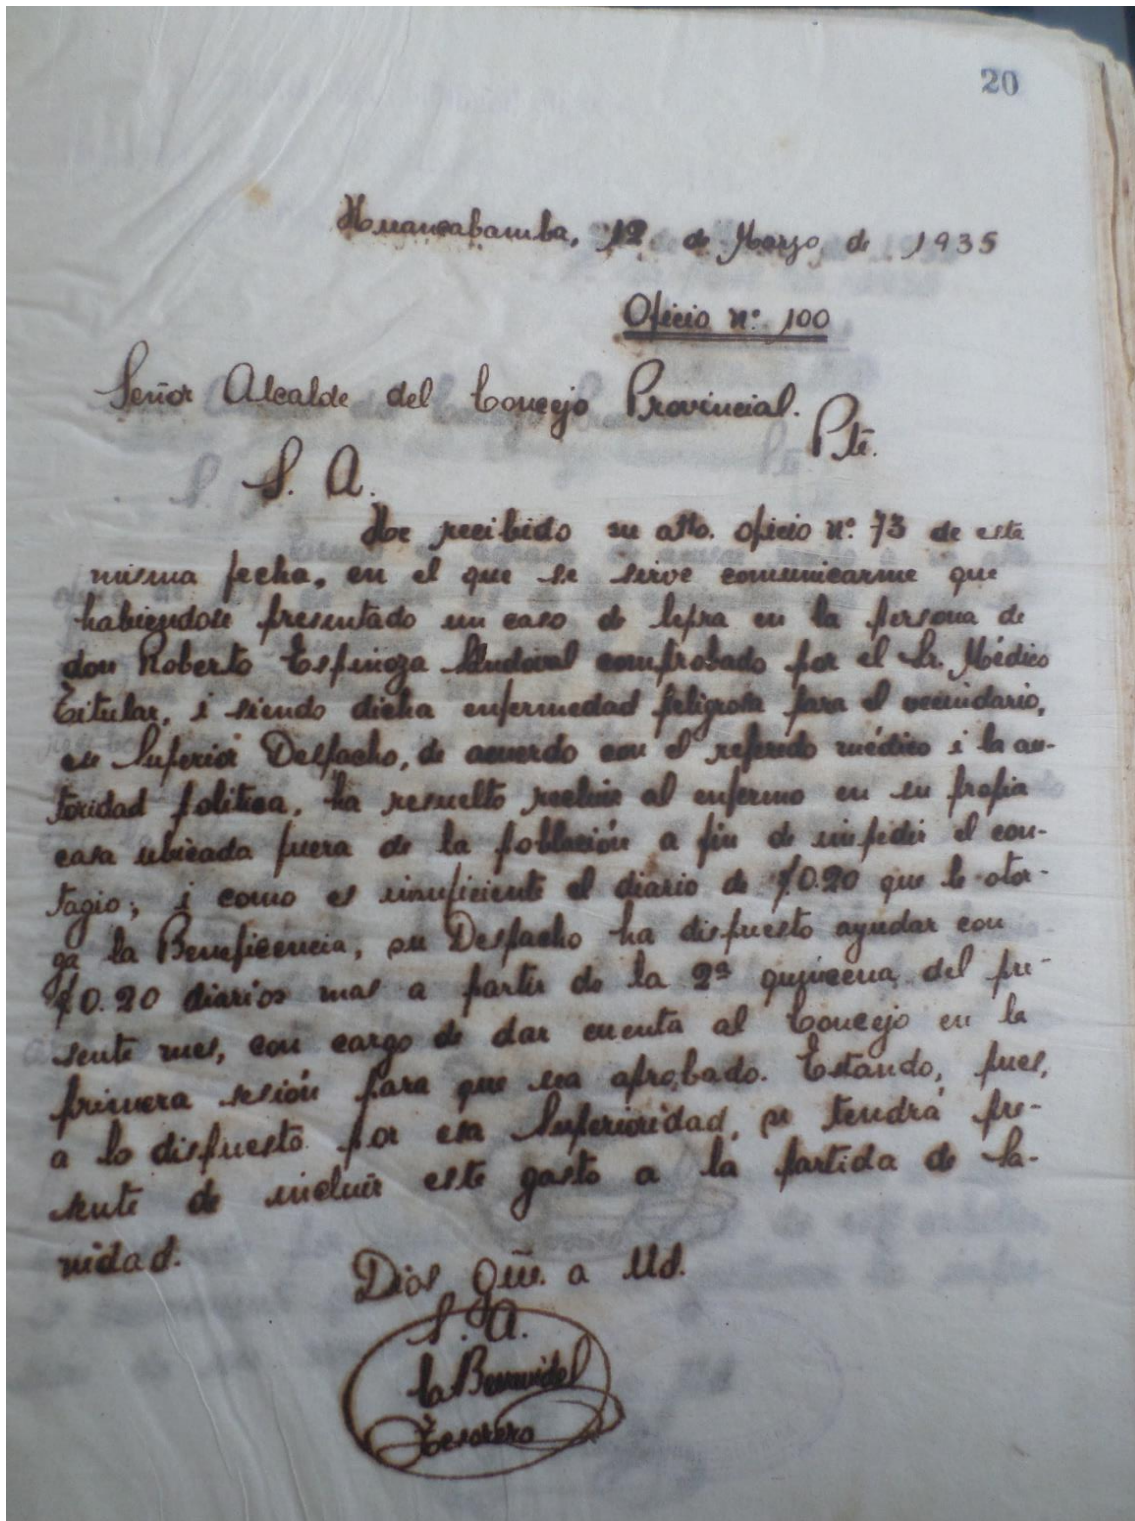 20
Huancabamba, 12 de Marzo de 1935
Oficio n°. 100
Señor Alcalde del Concejo Provincial.
Pte.
S. A.
He recibido su atto. oficio n°. 73 de este
misma fecha, en el que se sirve comunicarme que
habiendose presentado un caso de lepra en la persona de
don Roberto Espinoza Sandoval comprobado por el Sr. Médico
Titular, i siendo dicha enfermedad peligrosa para el vecindario,
su Superior Despacho, de acuerdo con el referido médico i la au-
toridad politica, ha resuelto recluir al enfermo en su propia
casa ubicada fuera de la población a fin de impedir el con-
tagio; i como es insuficiente el diario de $0.20 que le otor-
ga la Beneficencia, su Despacho ha dispuesto ayudar con
$0.20 diarios mas a partir de la 2ª quincena del pre-
sente mes, con cargo de dar cuenta al Concejo en la
primera sesión para que sea aprobado. Estando, pues,
a lo dispuesto por esa Superioridad, se tendrá pre-
sente de incluír este gasto a la partida de Sa-
nidad.
Dios güe. a Ud.
S. A.
Benavides
Tesorero